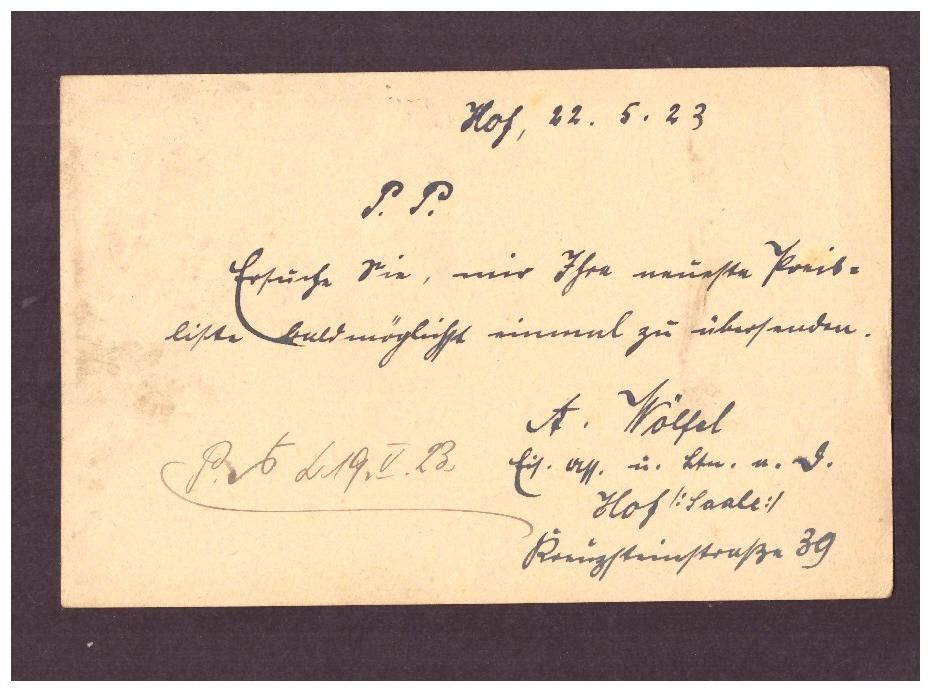 Hof, 22. 5. 23
P. P.
Ersuche Sie, mir Ihre neueste Preis-
liste baldmöglichst einmal zu übersenden.
A. Wölfel
Eis. Ass. u. Ltn. a. D.
Hof /:Saale:/
Kreuzsteinstraße 39
19. V. 23